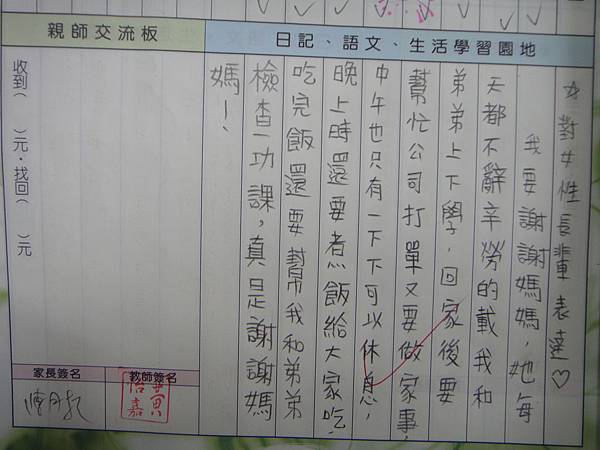 親師交流板
日記、語文、生活學習園地
☆對女性長輩表達♡
我要謝謝媽媽,她每
天都不辭辛勞的載我和
弟弟上下學,回家後要
幫忙公司打單又要做家事,
中午也只有一下下可以休息,
晚上時還要煮飯給大家吃,
吃完飯還要幫我和弟弟
檢查功課,真是謝謝媽
媽!
收到( )元·找回( )元
家長簽名
教師簽名
黃
信嘉